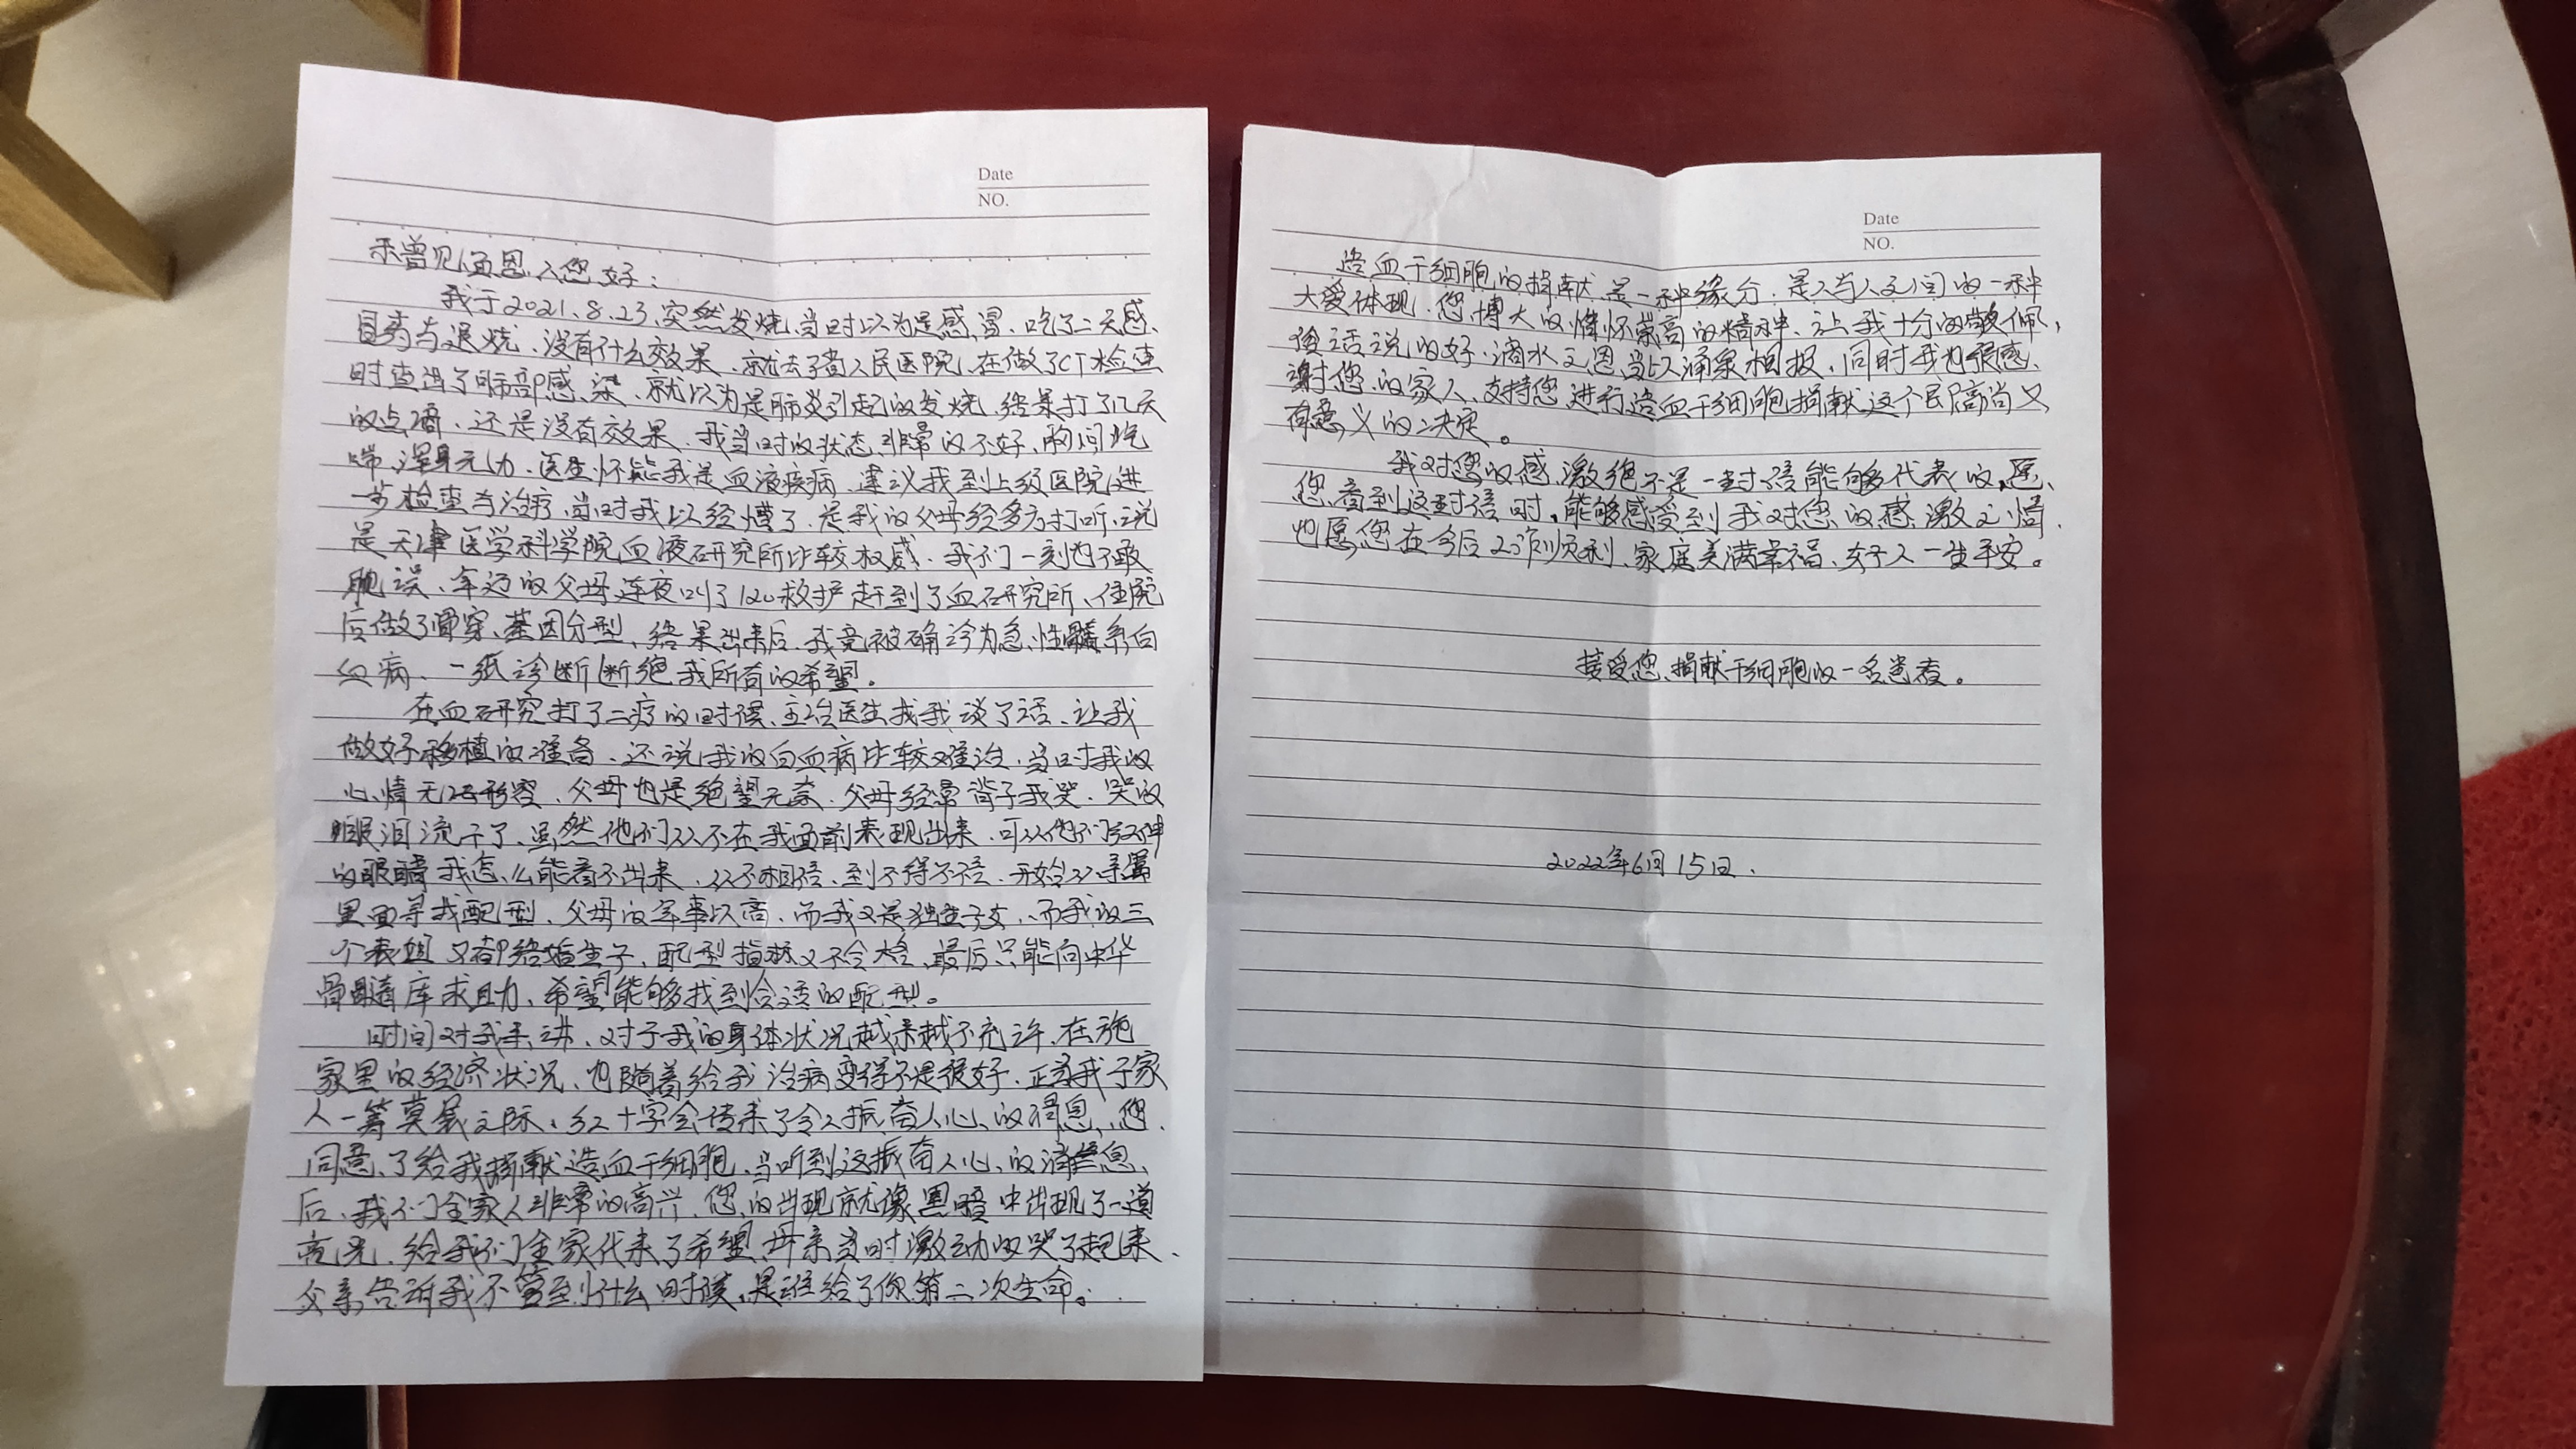 Date
NO.
未曾见面恩人您好：
我于2021.8.23、突然发烧、当时以为是感冒、吃了二天感
冒药与退烧、没有什么效果、就去了省人民医院、在做了CT检查
时查出了肺部感染、就以为是肺炎引起的发烧、结果打了几天
的点滴、还是没有效果、我当时的状态非常的不好、胸闷气
喘、浑身无力、医生怀疑我是血液疾病、建议我到上级医院进
一步检查与治疗、当时我以经懵了、是我的父母经多方打听、说
是天津医学科学院血液研究所比较权威、我们一刻也不敢
耽误、年迈的父母连夜叫了120救护赶到了血研究所、住院
后做了骨穿、基因分型、结果出来后、我竟被确诊为急性髓系白
血病、一纸诊断断绝我所有的希望。
在血研究打了二疗的时候、主治医生找我谈了话、让我
做好移植的准备、还说我的白血病比较难治、当时我的
心情无法形容、父母也是绝望无奈、父母经常背予我哭、哭的
眼泪流干了、虽然他们从不在我面前表现出来、可从他们红肿
的眼睛我怎么能看不出来、从不相信、到不得不信、开始从亲属
里面寻找配型、父母的年事以高、而我又是独生子女、而我的三
个表姐又都结婚生子、配型指标又不合格、最后只能向中华
骨髓库求助、希望能够找到合适的配型。
时间对我来讲、对于我的身体状况越来越不允许、在说
家里的经济状况、也随着给我治病变得不是很好、正当我于家
人一筹莫展之际、红十字会传来了令人振奋人心的消息、您
同意了给我捐献造血干细胞、当听到这振奋人心的消息
后、我们全家人非常的高兴、您的出现就像黑暗中出现了一道
亮光、给我们全家代来了希望、母亲当时激动的哭了起来、
父亲告诉我不管到什么时候、是谁给了你第二次生命。
Date
NO.
造血干细胞的捐献是一种缘分、是人与人之间的一种
大爱体现、您博大的情怀崇高的精神、让我十分的敬佩，
俗话说的好、滴水之恩当以涌泉相报、同时我也很感
谢您的家人、支持您进行造血干细胞捐献这个即高尚又
有意义的决定。
我对您的感激绝不是一封信能够代表的、愿
您看到这封信时、能够感受到我对您的感激之情、
也愿您在今后工作顺利、家庭美满幸福、好人一生平安。
接受您捐献干细胞的一名患者。
2022年6月15日.